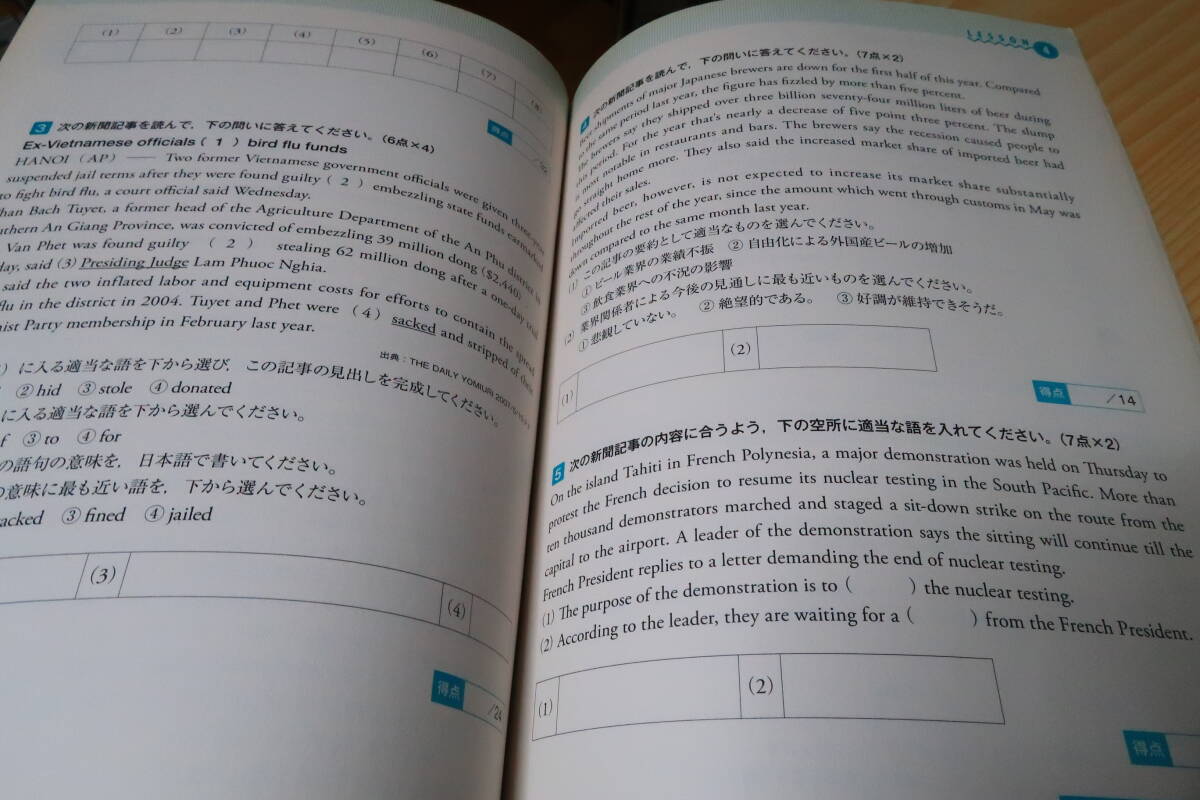 (1) (2) (3) (4) (5) (6) (7) (8)
3 次の新聞記事を読んで，下の問いに答えてください。(6点×4)
得点
Ex-Vietnamese officials ( 1 ) bird flu funds
HANOI (AP) —— Two former Vietnamese government officials were given three-year
suspended jail terms after they were found guilty ( 2 ) embezzling state funds earmarked
to fight bird flu, a court official said Wednesday.
han Bach Tuyet, a former head of the Agriculture Department of the An Phu district in
uthern An Giang Province, was convicted of embezzling 39 million dong ($2,440)
Van Phet was found guilty ( 2 ) stealing 62 million dong after a one-day trial
day, said (3) Presiding Judge Lam Phuoc Nghia.
said the two inflated labor and equipment costs for efforts to contain the spread
flu in the district in 2004. Tuyet and Phet were (4) sacked and stripped of their
nist Party membership in February last year.
出典：THE DAILY YOMIURI 2007/5/
) に入る適当な語を下から選び，この記事の見出しを完成してください。
② hid ③ stole ④ donated
に入る適当な語を下から選んでください。
f ③ to ④ for
の語句の意味を，日本語で書いてください。
の意味に最も近い語を，下から選んでください。
acked ③ fined ④ jailed
(3) (4)
得点 /24
LESSON 4
4 次の新聞記事を読んで，下の問いに答えてください。(7点×2)
Beer shipments of major Japanese brewers are down for the first half of this year. Compared
to the same period last year, the figure has fizzled by more than five percent.
the brewers say they shipped over three billion seventy-four million liters of beer during
period. For the year that's nearly a decrease of five point three percent. The slump
most notable in restaurants and bars. The brewers say the recession caused people to
straight home more. They also said the increased market share of imported beer had
affected their sales.
Imported beer, however, is not expected to increase its market share substantially
throughout the rest of the year, since the amount which went through customs in May was
down compared to the same month last year.
(1) この記事の要約として適当なものを選んでください。
① ビール業界の業績不振 ② 自由化による外国産ビールの増加
③ 飲食業界への不況の影響
(2) 業界関係者による今後の見通しに最も近いものを選んでください。
① 悲観していない。 ② 絶望的である。 ③ 好調が維持できそうだ。
(1) (2)
得点 /14
5 次の新聞記事の内容に合うよう，下の空所に適当な語を入れてください。(7点×2)
On the island Tahiti in French Polynesia, a major demonstration was held on Thursday to
protest the French decision to resume its nuclear testing in the South Pacific. More than
ten thousand demonstrators marched and staged a sit-down strike on the route from the
capital to the airport. A leader of the demonstration says the sitting will continue till the
French President replies to a letter demanding the end of nuclear testing.
(1) The purpose of the demonstration is to ( ) the nuclear testing.
(2) According to the leader, they are waiting for a ( ) from the French President.
(1) (2)
得点